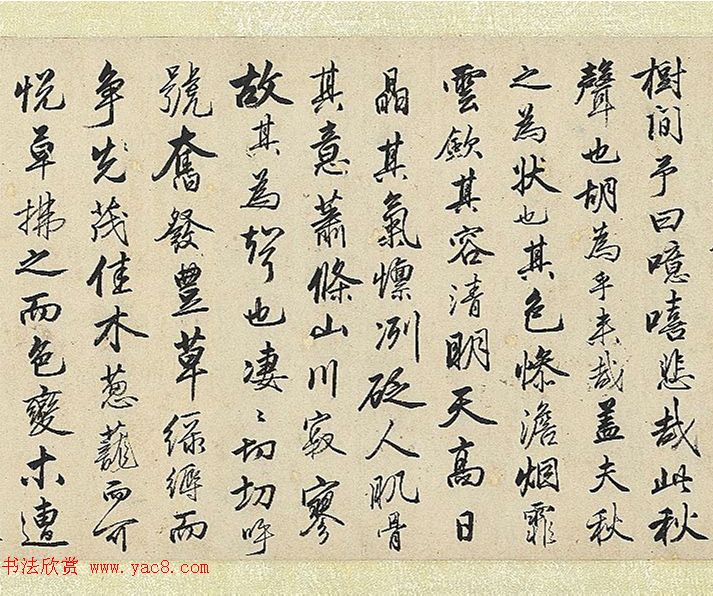 樹間予曰噫嘻悲哉此秋
聲也胡為乎来哉盖夫秋
之為状也其色惨澹烟霏
雲歛其容清明天高日
晶其氣慄冽砭人肌骨
其意蕭條山川寂寥
故其為聲也凄〻切切呼
號奮發豐草緑縟而
争先茂佳木葱蘢而可
悦草拂之而色變木遭
书法欣赏 www.yac8.com